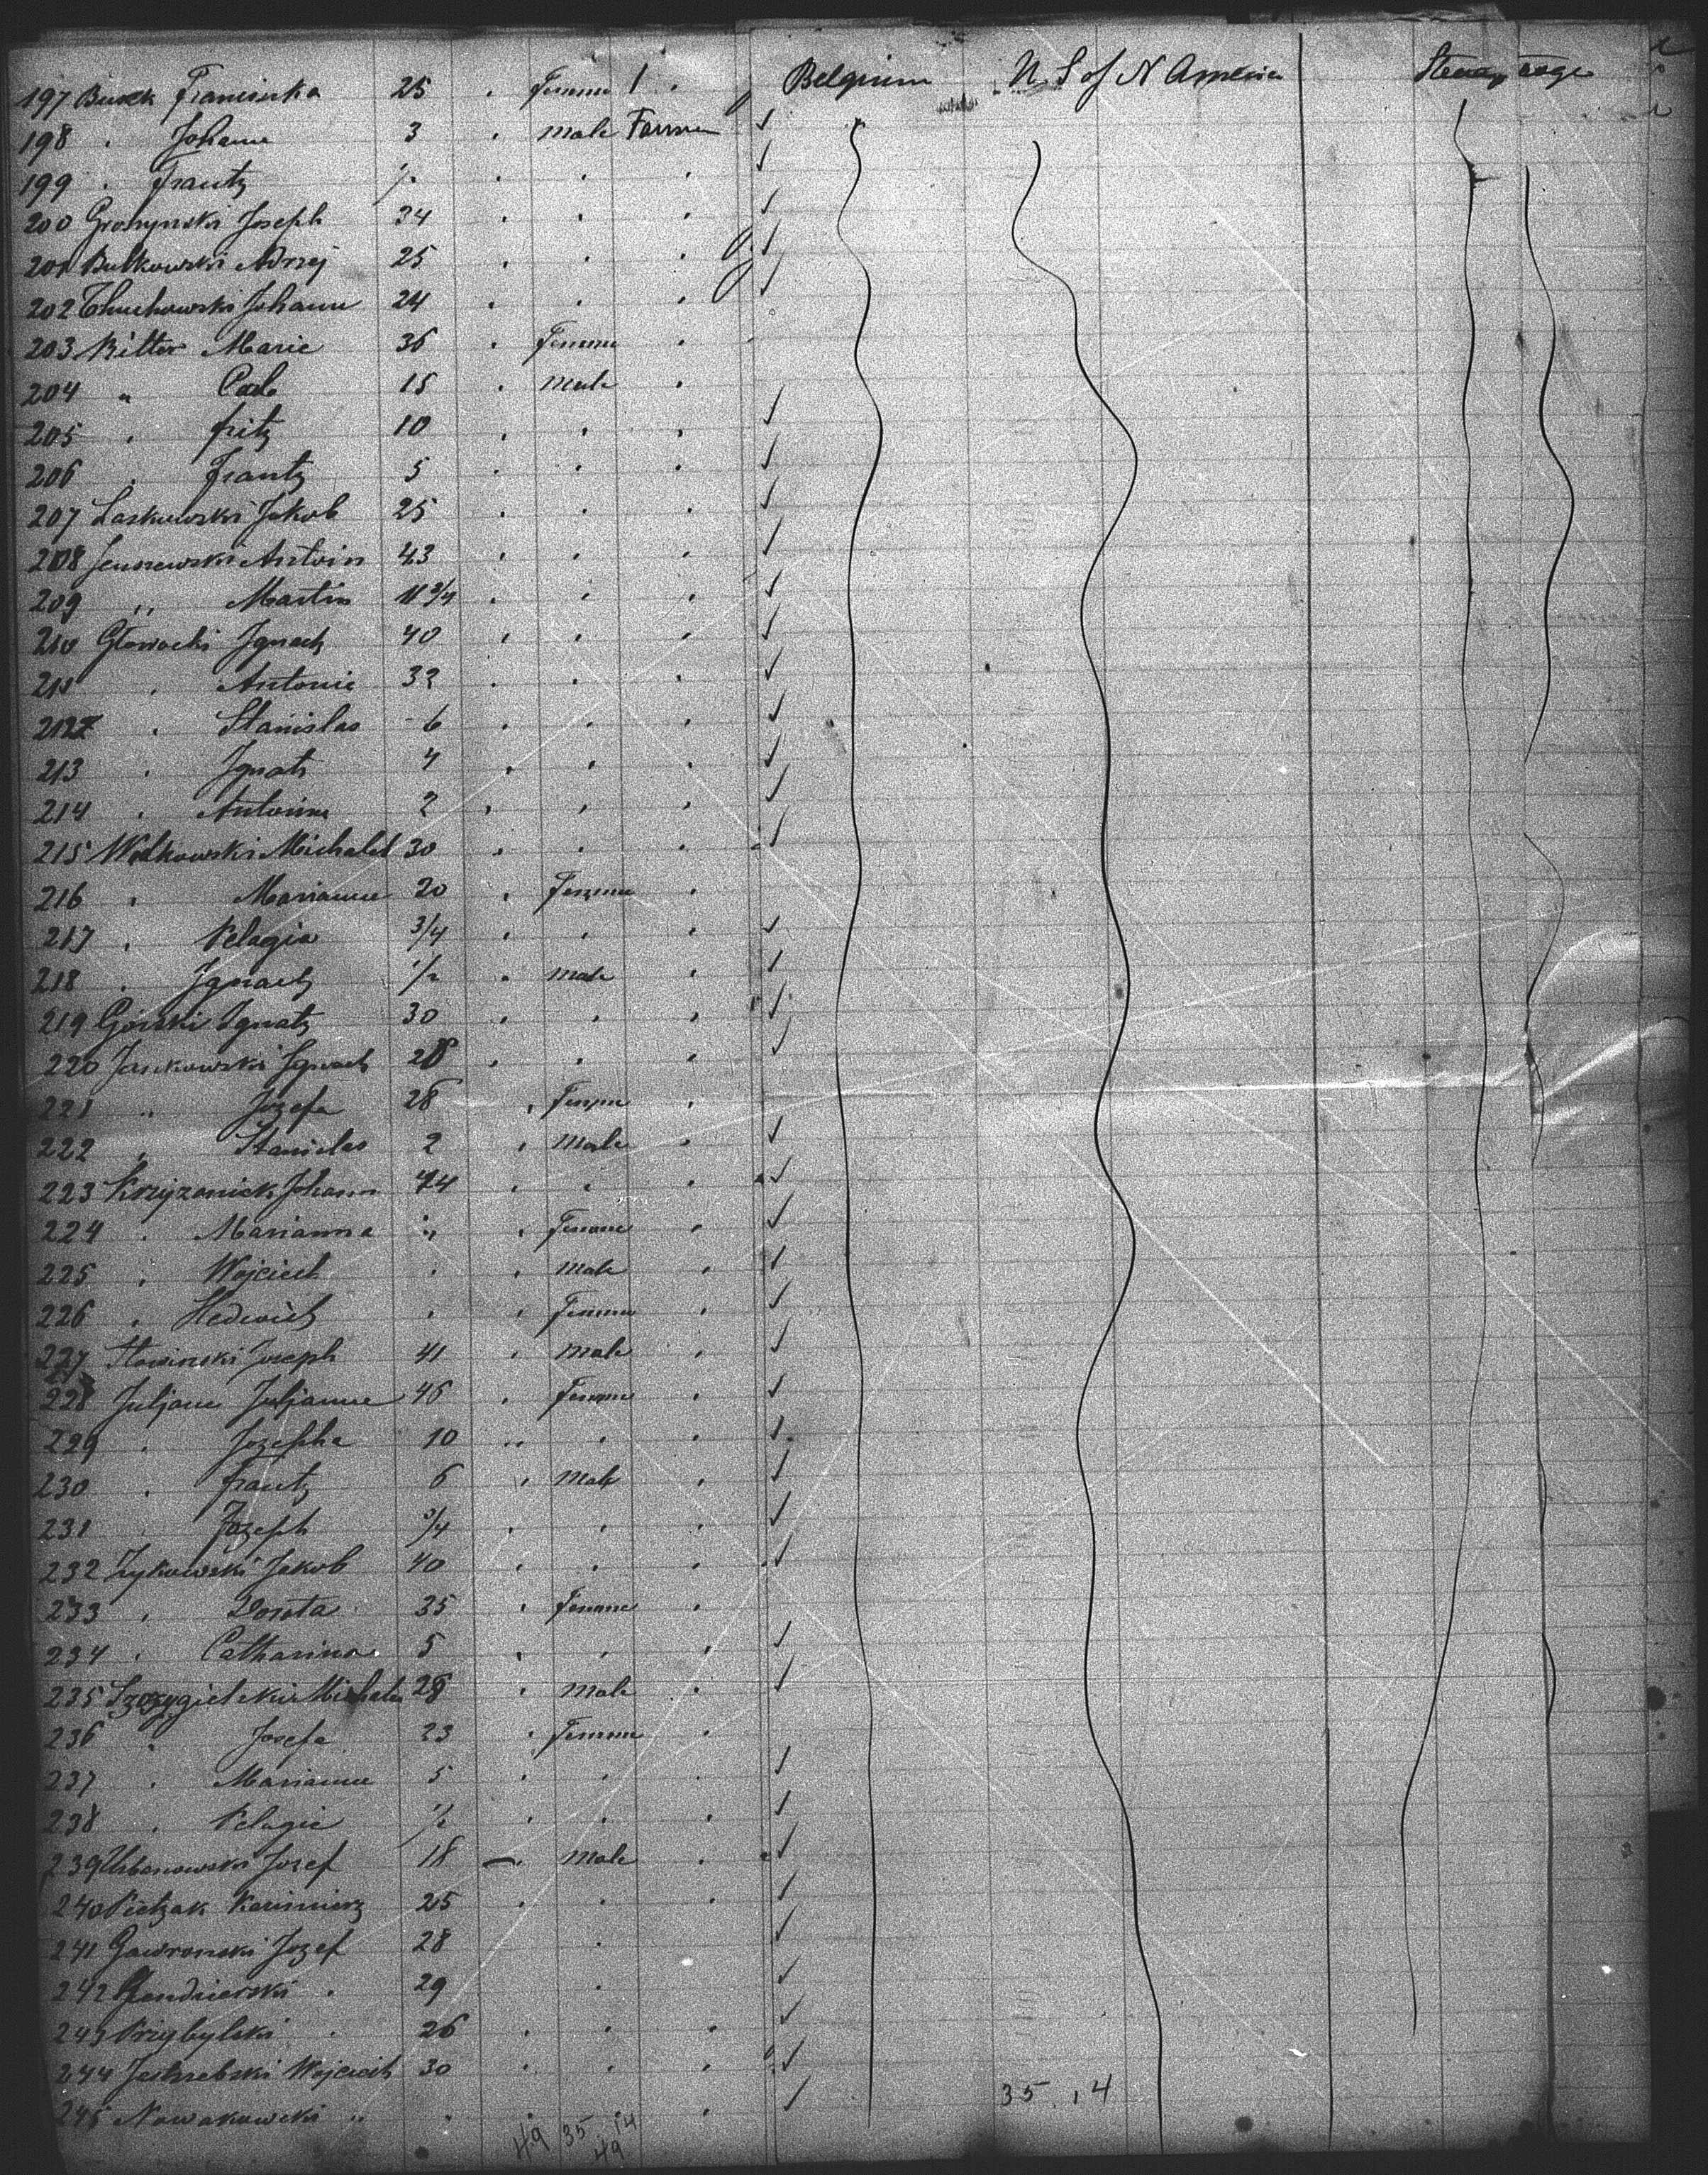 197 Burek Franciska 25 . Femme 1 . Belgium U S of N America Steerage
198 . Johann 3 . male Farmer
199 . Frantz ½ . . .
200 Joseph 34 . . .
201 Butkowski Adrzej 25 . . .
202 Johann 24 . . .
203 Ritter Marie 36 . Femme .
204 " Carl 15 . male .
205 . fritz 10 . . .
206 . Frantz 5 . . .
207 Laskowski Jakob 25 . . .
208 Antoin 43 . . .
209 " Martin 11 3/4 . . .
210 Glowacki Ignatz 40 . . .
211 . Antonie 32 . . .
212 . Stanislas 6 . . .
213 . Ignatz 4 . . .
214 . Antoine 2 . . .
215 Wolkowski Michalel 30 . . .
216 . Marianne 20 . Femme .
217 . Pelagia 3/4 . . .
218 . Ignatz ½ . male .
219 Gorski Ignatz 30 . . .
220 Jankowski Ignatz 28 . . .
221 " Jozefa 28 . Femme .
222 " Stanislas 2 . Male .
223 Krzyzaniek Johann 44 . . .
224 . Marianna " . Femme .
225 . Wojciech . . Male .
226 . Hedwich . . Femme .
227 Slowinski Joseph 41 . Male .
228 Juljane Juljanne 46 . Femme .
229 . Jozepha 10 . . .
230 . frantz 6 . Male .
231 . Jozeph 3/4 . . .
232 Zykowski Jakob 40 . . .
233 . Dorota 35 . Femme .
234 . Catharina 5 . . .
235 Szczygielski Michale 28 . Male .
236 " Josefa 23 . Femme .
237 . Marianne 5 . . .
238 . Pelagie ½ . . .
239 Urbanowski Josef 18 — . Male .
240 Pietzak Kasimierz 25 . . .
241 Gawronski Jozef 28 .
242 . 29 .
243 Przybylski . 26 . . .
244 Jastrzebski Wojciech 30 . . .
35 . 14
245 Nowakowski " " . .
49 35 14
49